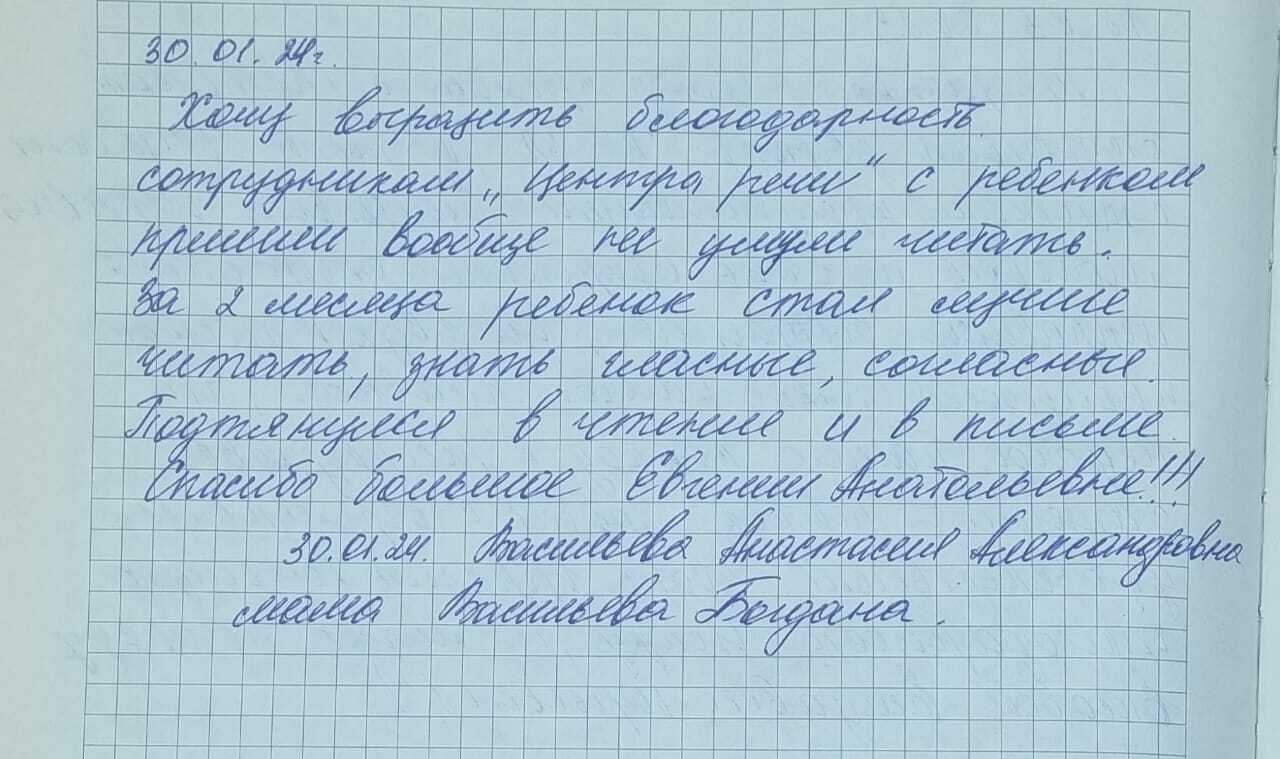 30.01.24г.
Хочу выразить благодарность
сотрудникам „Центра речи" с ребенком
пришли вообще не умули читать.
За 2 месяца ребенок стал лучше
читать, знать гласные, согласные.
Подтянулся в чтение и в письме.
Спасибо большое Евгении Анатольевне!!!
30.01.24. Васильева Анастасия Александровна
мама Васильева Богдана.